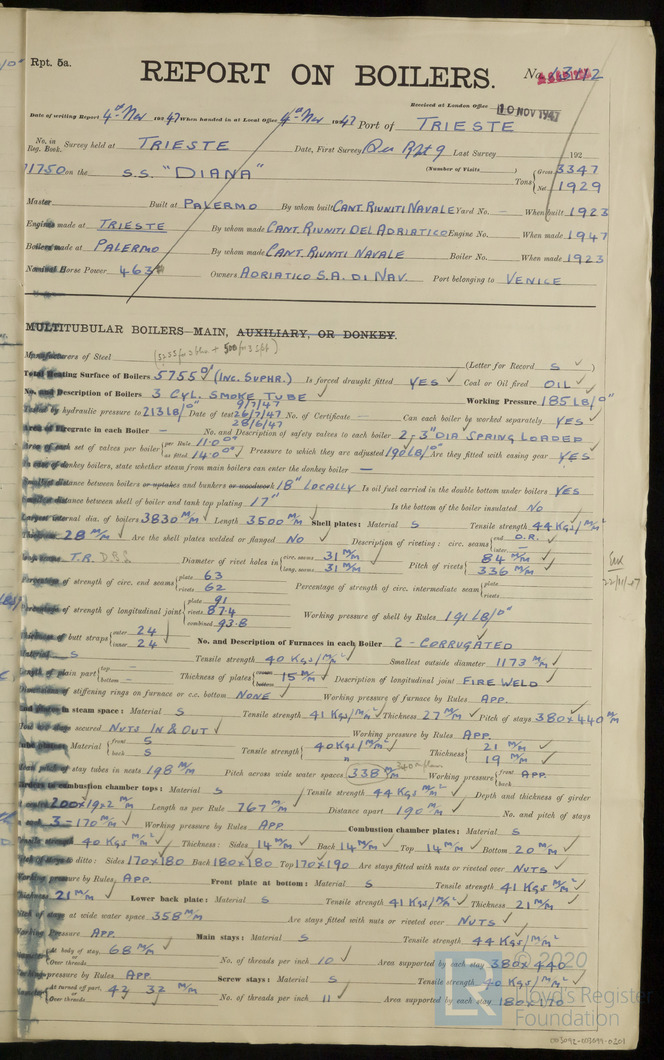 Rpt. 5a.
REPORT ON BOILERS.
No. 13712
Received at London Office 10 NOV 1947
Date of writing Report 4th Nov 1947 When handed in at Local Office 4th Nov 1947 Port of TRIESTE
No. in Reg. Book. Survey held at TRIESTE Date, First Survey See Rpt 9 Last Survey 192
1750 on the S.S. "DIANA" (Number of Visits ) Tons { Gross 3347
Net 1929
Master Built at PALERMO By whom built CANT. RIUNITI NAVALE Yard No. — When built 1923
Engines made at TRIESTE By whom made CANT. RIUNITI DEL ADRIATICO Engine No. — When made 1947
Boilers made at PALERMO By whom made CANT. RIUNITI NAVALE Boiler No. — When made 1923
Nominal Horse Power 463 Owners ADRIATICO S.A. DI NAV. Port belonging to VENICE
MULTITUBULAR BOILERS—MAIN, AUXILIARY, OR DONKEY.
Manufacturers of Steel (Letter for Record S )
Total Heating Surface of Boilers 5755 □' (INC. SUPHR.) Is forced draught fitted YES Coal or Oil fired OIL
No. and Description of Boilers 3 CYL. SMOKE TUBE Working Pressure 185 LB/□"
Tested by hydraulic pressure to 213 LB/□" Date of test 9/7/47 26/7/47 28/6/47 No. of Certificate — Can each boiler be worked separately YES
Area of Firegrate in each Boiler — No. and Description of safety valves to each boiler 2-3" DIA SPRING LOADED
Area of each set of valves per boiler { per Rule 11.0 □" as fitted 14.0 □" Pressure to which they are adjusted 190 LB/□" Are they fitted with easing gear YES
In case of donkey boilers, state whether steam from main boilers can enter the donkey boiler —
Smallest distance between boilers or uptakes and bunkers or woodwork 18" LOCALLY Is oil fuel carried in the double bottom under boilers YES
Smallest distance between shell of boiler and tank top plating 17" Is the bottom of the boiler insulated NO
Largest internal dia. of boilers 3830 M/M Length 3500 M/M Shell plates: Material S Tensile strength 44 KGS/M/M²
Thickness 28 M/M Are the shell plates welded or flanged NO Description of riveting: circ. seams { end D.R. inter —
long. seams T.R. D.B.S. Diameter of rivet holes in { circ. seams 31 M/M long. seams 31 M/M Pitch of rivets { 84 M/M 336 M/M
Percentage of strength of circ. end seams { plate 63 rivets 62 Percentage of strength of circ. intermediate seam { plate rivets
Percentage of strength of longitudinal joint { plate 91 rivets 87.4 combined 93.8 Working pressure of shell by Rules 191 LB/□"
Thickness of butt straps { outer 24 inner 24 No. and Description of Furnaces in each Boiler 2 - CORRUGATED
Material S Tensile strength 40 KGS/M/M² Smallest outside diameter 1173 M/M
Length of plain part { top — bottom — Thickness of plates { crown bottom 15 M/M Description of longitudinal joint FIRE WELD
Dimensions of stiffening rings on furnace or c.c. bottom NONE Working pressure of furnace by Rules APP.
End plates in steam space: Material S Tensile strength 41 KGS/M/M² Thickness 27 M/M Pitch of stays 380 x 440 M/M
How are stays secured NUTS IN & OUT Working pressure by Rules APP.
Tube plates: Material { front S back S Tensile strength { 40 KGS/M/M² " Thickness { 21 M/M 19 M/M
Mean pitch of stay tubes in nests 198 M/M Pitch across wide water spaces 338 M/M Working pressure { front APP. back
Girders to combustion chamber tops: Material S Tensile strength 44 KGS/M/M² Depth and thickness of girder
at centre 200x19x2 M/M Length as per Rule 767 M/M Distance apart 190 M/M No. and pitch of stays
in each 3 = 170 M/M Working pressure by Rules APP. Combustion chamber plates: Material S
Tensile strength 40 KGS/M/M² Thickness: Sides 14 M/M Back 14 M/M Top 14 M/M Bottom 20 M/M
Pitch of stays to ditto: Sides 170x180 Back 180x180 Top 170x190 Are stays fitted with nuts or riveted over NUTS
Working pressure by Rules APP. Front plate at bottom: Material S Tensile strength 41 KGS M/M²
Thickness 21 M/M Lower back plate: Material S Tensile strength 41 KGS/M/M² Thickness 21 M/M
Pitch of stays at wide water space 358 M/M Are stays fitted with nuts or riveted over NUTS
Working Pressure APP. Main stays: Material S Tensile strength 44 KGS/M/M²
Diameter { At body of stay, 68 M/M or Over threads No. of threads per inch 10 Area supported by each stay 380 x 440
Working pressure by Rules APP. Screw stays: Material S Tensile strength 40 KGS/M/M²
Diameter { At turned off part, 42 32 M/M or Over threads No. of threads per inch 11 Area supported by each stay 180x170
22/11/47
LR © 2020
Lloyd's Register
Foundation